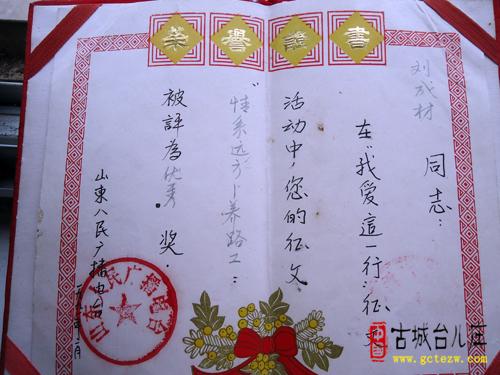 荣譽證書
刘成材
同志：
在"我爱這一行"征文
活动中，您的征文
"情系远方
养路工
被評為优秀 奖．
山東人民广播电台
山东人民广播电台
中国
古城台儿庄
www.gctezw.com